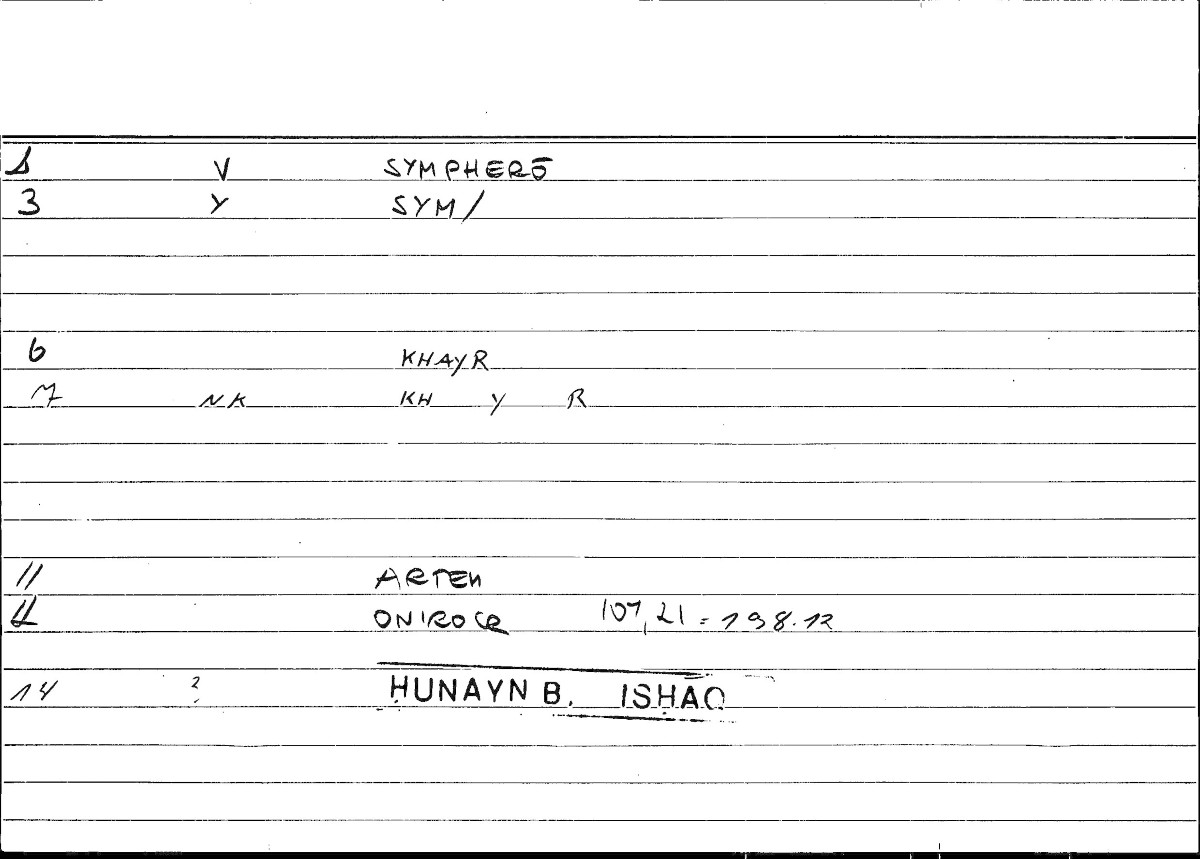 1 V SYMPHERŌ
3 Y SYM/
6 KHAYR
7 NK KH Y R
11 ARTEM
12 ONIROCR 107,21 = 198.12
14 ? ḤUNAYN B. ISḤĀQ